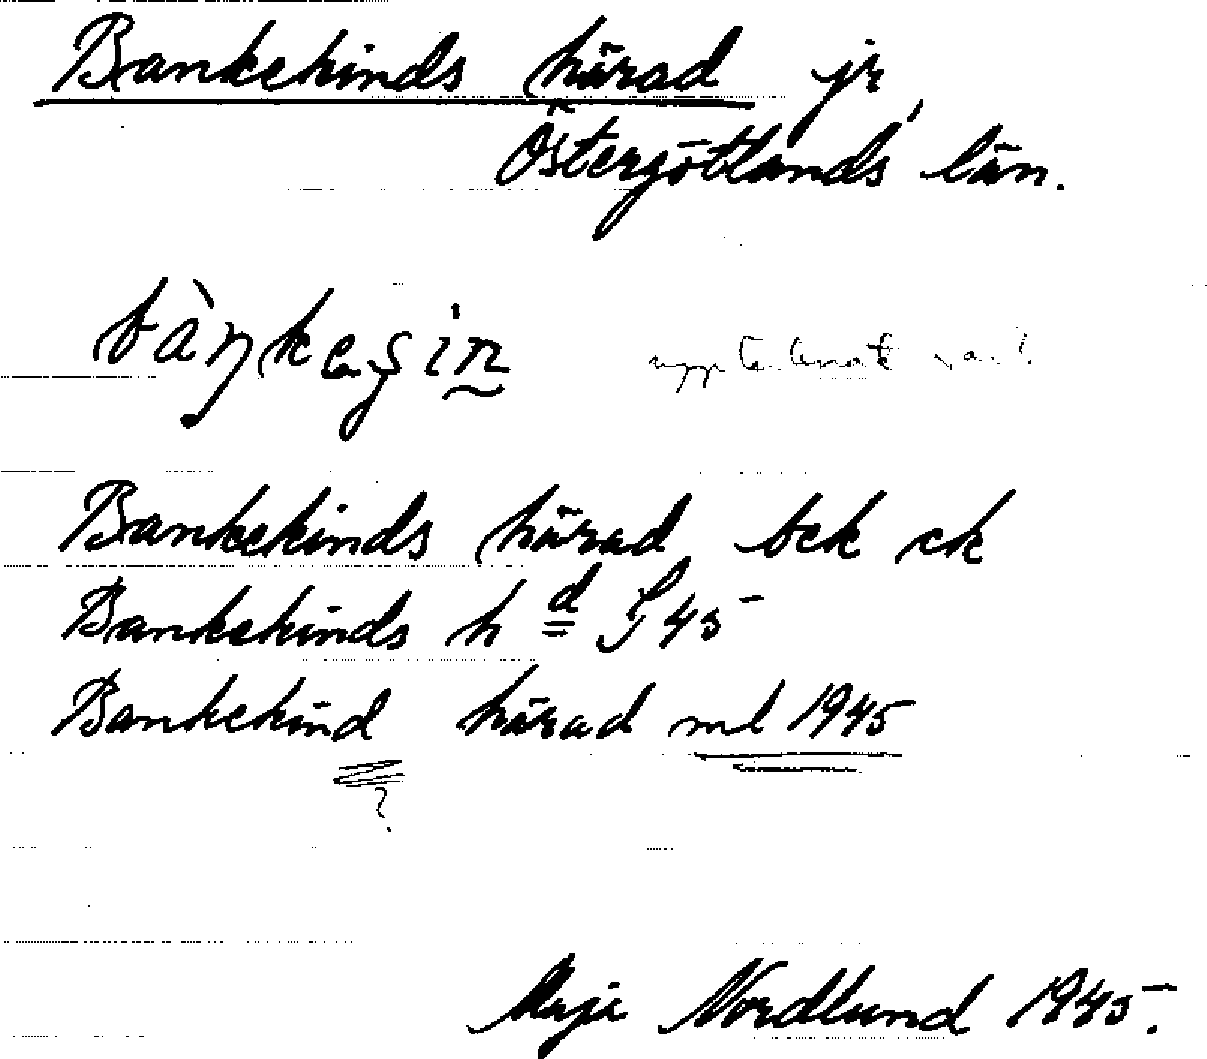 Bankekinds härad jr,
Östergötlands län.
bàŋkeʂin̰
Bankekinds härad bek ek
Bankekinds h d J 45
Bankekind härad ml 1945
?
Maje Nordlund 1945.